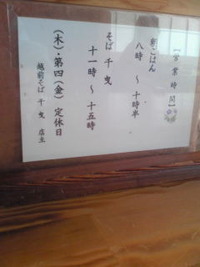 【営業時間】
朝ごはん
八時 ～ 十時半
そば 千曳
十一時 ～ 十五時
(木)・第四(金) 定休日
越前そば 千曳 店主